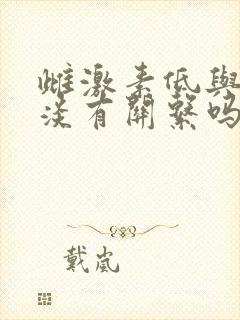 雌激素低與
淡有關繫嗎
戴嵐